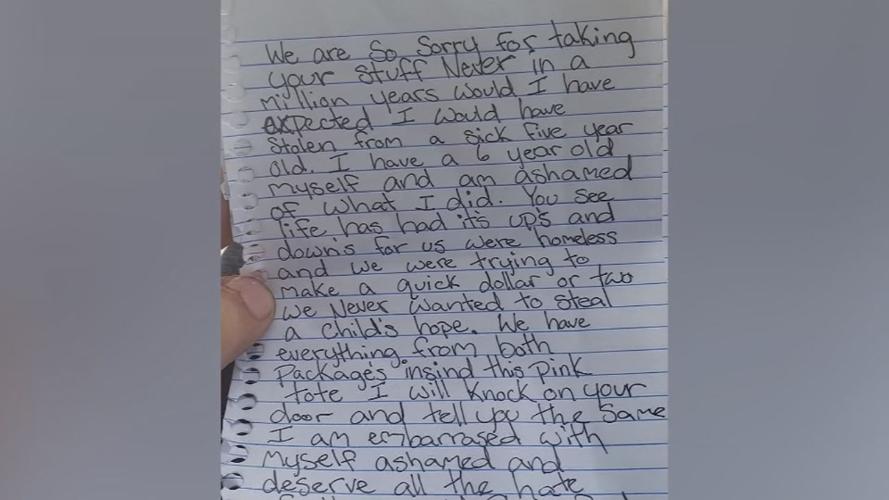 We are so sorry for taking
your stuff Never in a
million years would I have
expected I would have
stolen from a sick five year
old. I have a 6 year old
myself and am ashamed
of what I did. You see
life has had it's up's and
down's for us were homeless
and we were trying to
make a quick dollar or two
we Never wanted to steal
a child's hope. We have
everything from both
Package's insind this pink
tote I will knock on your
door and tell you the same
I am embarrased with
myself ashamed and
deserve all the hate